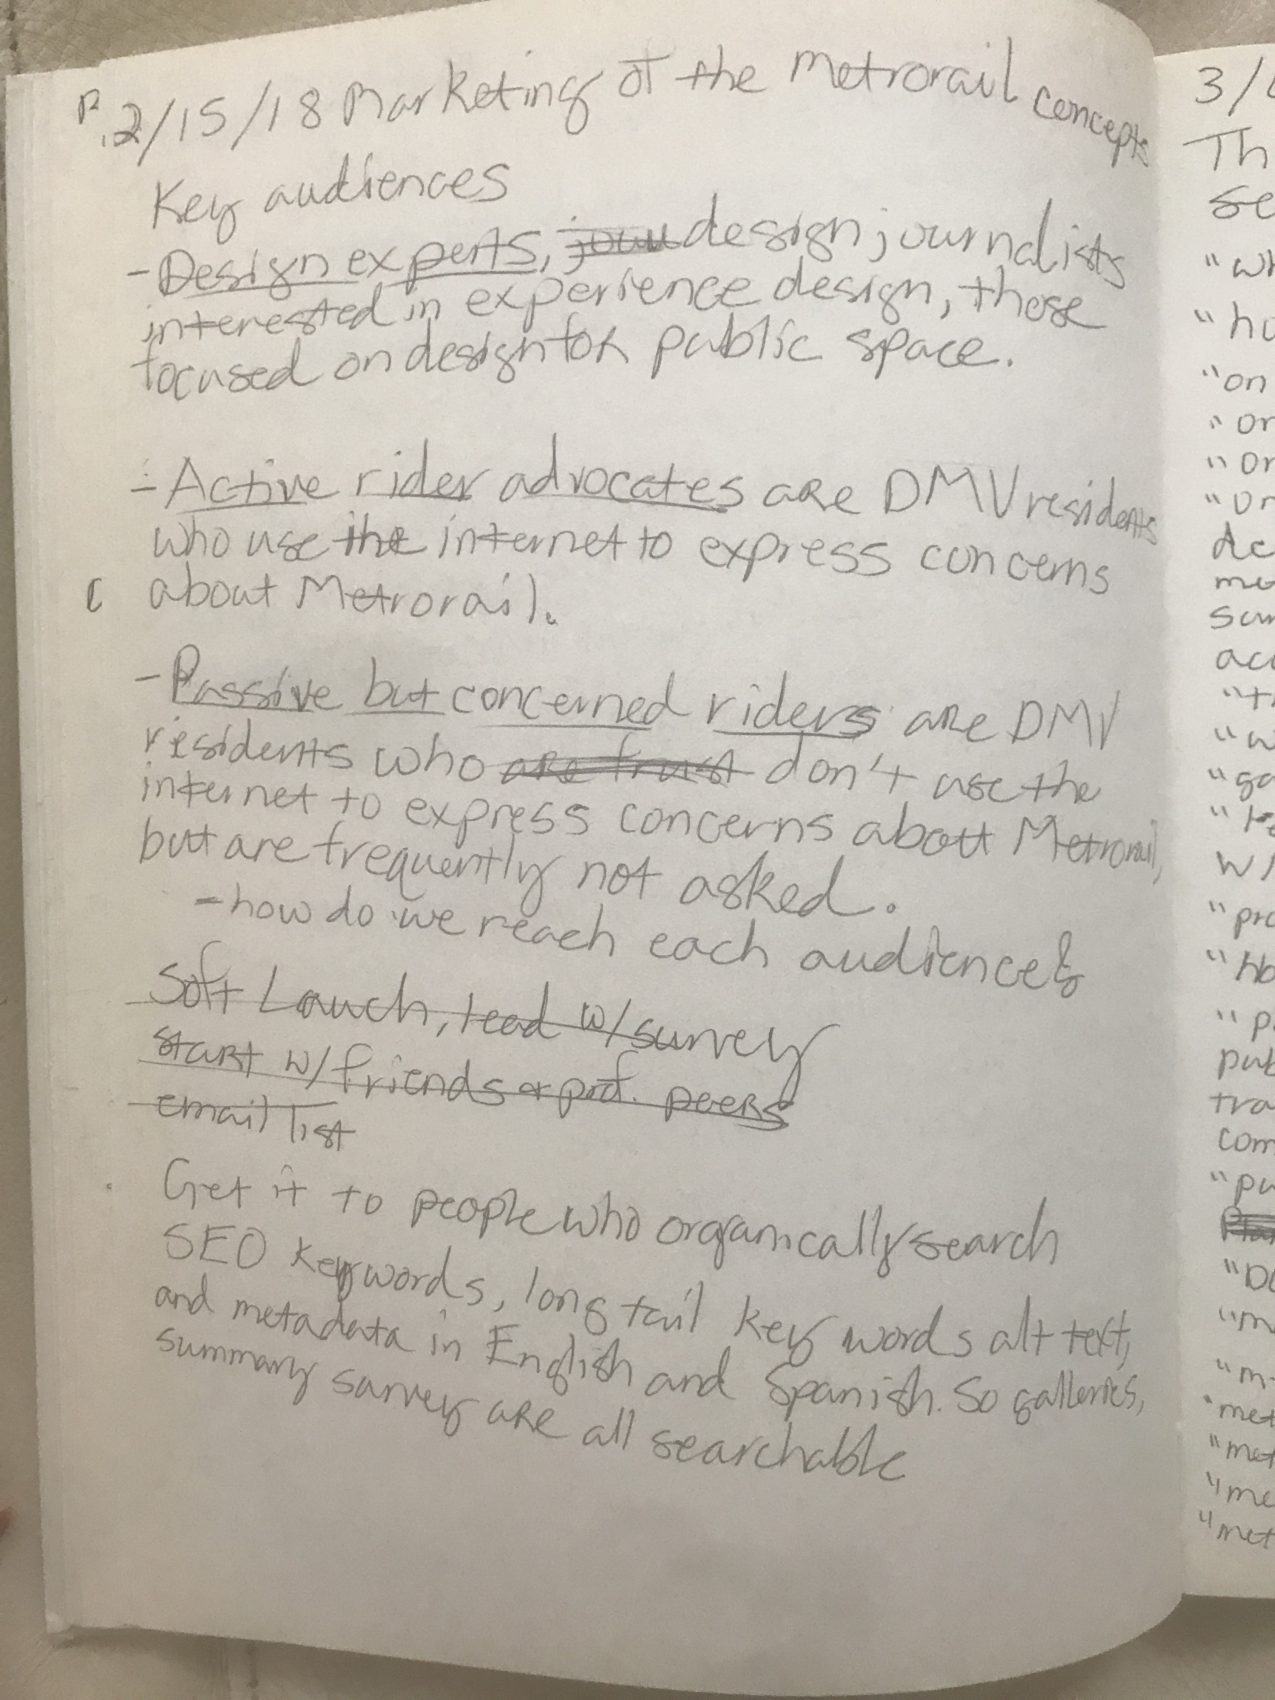 P. 2/15/18 Marketing of the Metrorail concepts
Key audiences
- Design experts, jour design journalists
interested in experience design, those
focused on design for public space.
- Active rider advocates are DMV residents
who use the internet to express concerns
about Metrorail.
- Passive but concerned riders are DMV
residents who are trust don't use the
internet to express concerns about Metrorail,
but are frequently not asked.
- how do we reach each audience
Soft Lauch, lead w/ survey
start w/ friends & prof. peers
email list
Get it to people who organically search
SEO keywords, long tail key words alt text,
and metadata in English and Spanish. So galleries,
summary survey are all searchable
3/
Th
se
"wh
"ho
"on
"or
"or
"or
de
me
sur
acc
"th
"w
"ga
w/
"pro
"Ho
"p
pub
tra
com
"pu
"DC
"m
"m
"met
"met
"me
"met